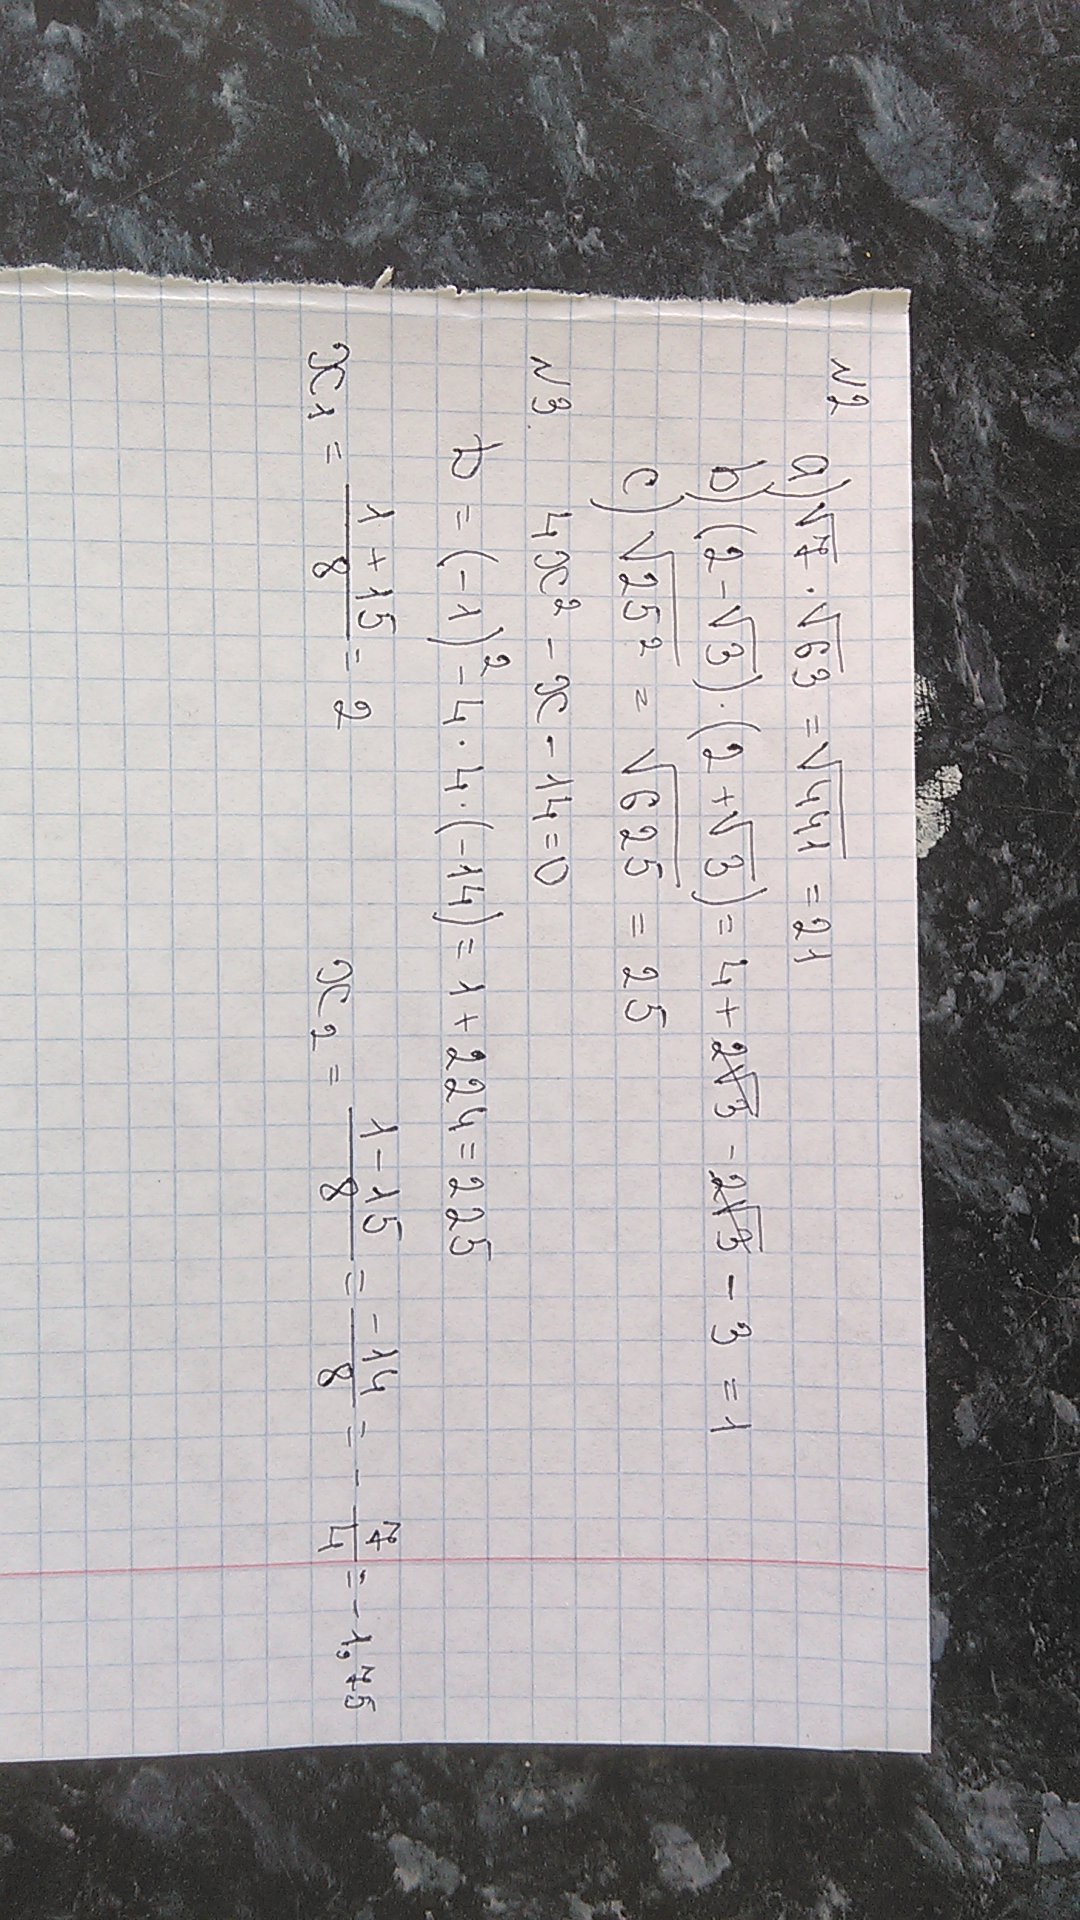 №2
a) √7 · √63 = √441 = 21
b) (2 - √3) · (2 + √3) = 4 + 2√3 - 2√3 - 3 = 1
c) √25² = √625 = 25
№3
4x² - x - 14 = 0
D = (-1)² - 4 · 4 · (-14) = 1 + 224 = 225
x₁ = (1 + 15)/8 = 2 x₂ = (1 - 15)/8 = -14/8 = - 7/4 = -1,75